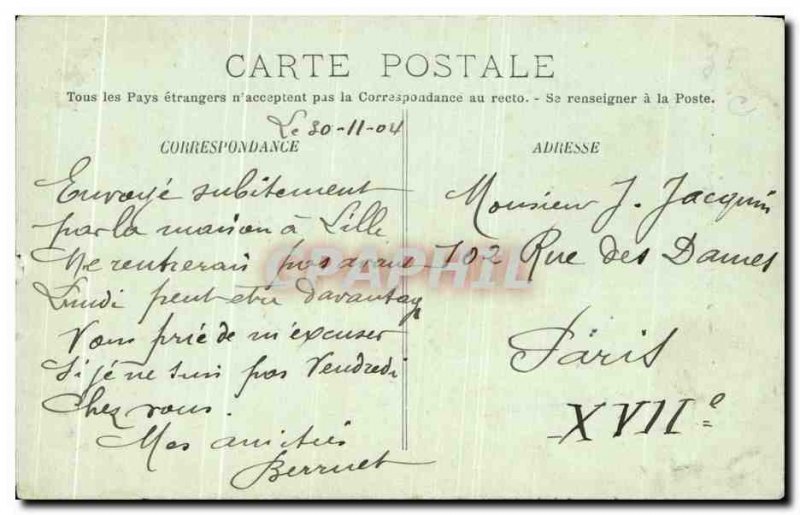 CARTE POSTALE
Tous les Pays étrangers n'acceptent pas la Correspondance au recto. - Se renseigner à la Poste.
Le 30-11-04
CORRESPONDANCE
Envoyé subitement
par la maison à Lille
Ne rentrerais pas avant
Lundi peut etre davantag
Vous prie de m'excuser
Si je ne suis pas Vendredi
Chez vous.
Mes amitiés
Berruet
ADRESSE
Monsieur J. Jacquin
102 Rue des Dames
Paris
XVIIe
CPAPHIL